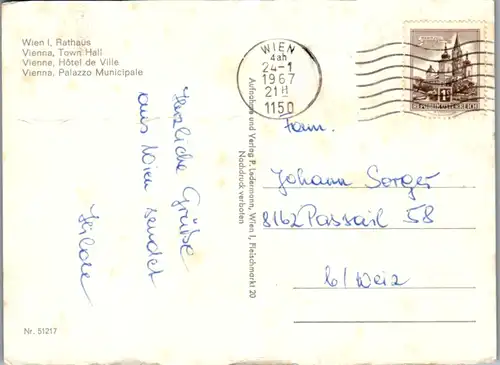 Wien I, Rathaus
Vienna, Town Hall
Vienne, Hôtel de Ville
Vienna, Palazzo Municipale
WIEN
4ah
24-1
1967
21H
1150
REPUBLIK ÖSTERREICH
Herzliche Grüße
aus Wien sendet
Hilde
Aufnahme und Verlag P. Ledermann, Wien I, Fleischmarkt 20
Nachdruck verboten
Fam.
Johann Sorger
8162 Passail 58
b/Weiz
Nr. 51217